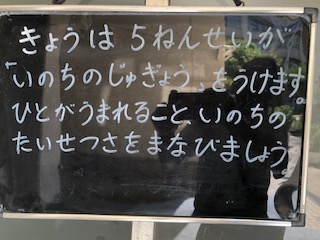 きょうは5ねんせいが
「いのちのじゅぎょう」をうけます。
ひとがうまれること、いのちの
たいせつさをまなびましょう